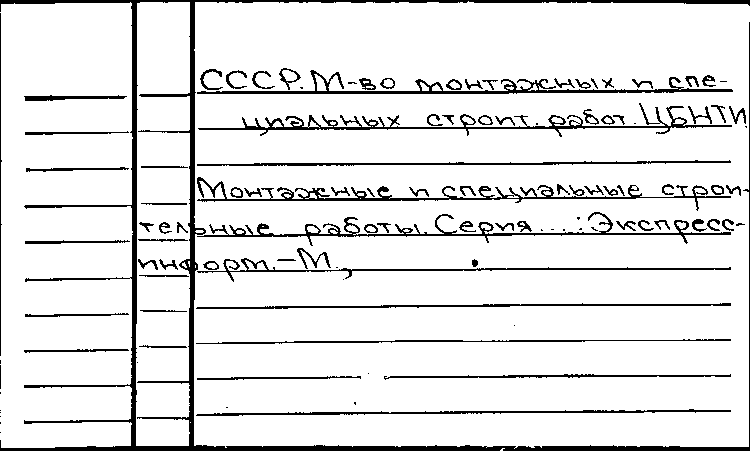 СССР. М-во монтажных и спе-
циальных строит. работ. ЦБНТИ
Монтажные и специальные строи-
тельные работы. Серия ...: Экспресс-
информ. – М,